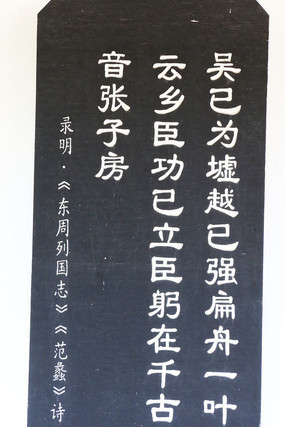 吴已为墟越已强扁舟一叶
云乡臣功已立臣躬在千古
音张子房
录明·《东周列国志》《范蠡》诗